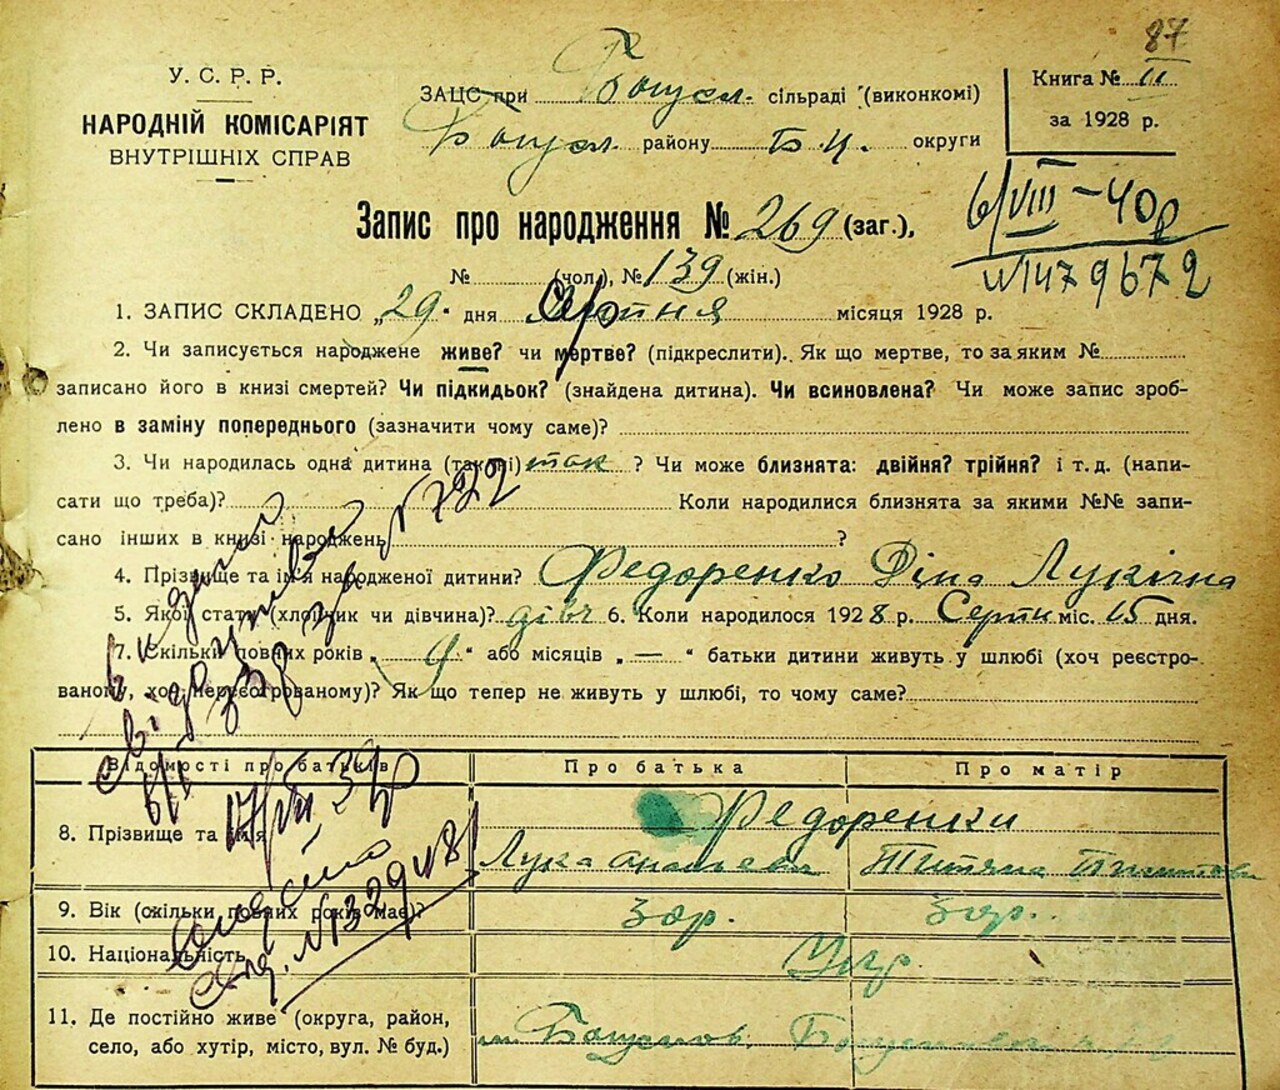 87
У. С. Р. Р.
НАРОДНІЙ КОМІСАРІЯТ
ВНУТРІШНІХ СПРАВ
ЗАЦС при Богусл. сільраді (виконкомі)
Богусл. району Б Ц. округи
Книга № II
за 1928 р.
6/VIII – 40 р
№ 1479672
Запис про народження № 269 (заг.),
№ (чол.), № 139 (жін.)
1. ЗАПИС СКЛАДЕНО „29" дня Серпня місяця 1928 р.
2. Чи записується народжене живе? чи мертве? (підкреслити). Як що мертве, то за яким №
записано його в книзі смертей? Чи підкидьок? (знайдена дитина). Чи всиновлена? Чи може запис зроб-
лено в заміну попереднього (зазначити чому саме)?
3. Чи народилась одна дитина (так ні) так ? Чи може близнята: двійня? трійня? і т. д. (напи-
сати що треба)? Коли народилися близнята за якими №№ запи-
сано інших в книзі народжень ?
4. Прізвище та ім'я народженої дитини? Федоренко Діна Лукічна
5. Якої статі (хлопчик чи дівчина)? дівч 6. Коли народилося 1928 р. Серпн міс. 15 дня.
7. Скільки повних років „ 9 " або місяців „ — " батьки дитини живуть у шлюбі (хоч реєстро-
ваному, хоч нереєстрованому)? Як що тепер не живуть у шлюбі, то чому саме?
Відомості про батьків
Про батька
Про матір
8. Прізвище та ім'я
Федоренки
Лука
9. Вік (скільки повних років має)?
30р.
30р.
10. Національність
Укр.
11. Де постійно живе (округа, район,
село, або хутір, місто, вул. № буд.)